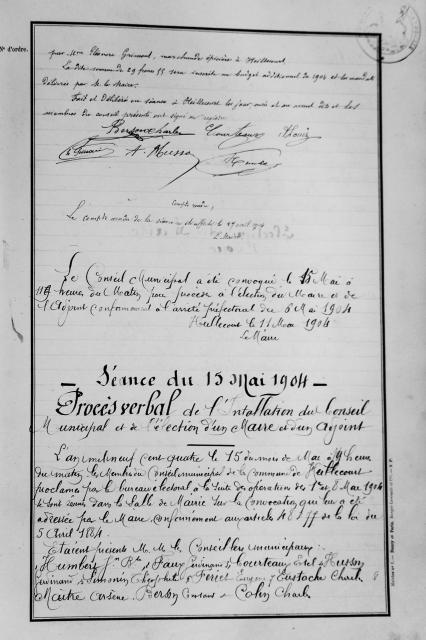 N° d'ordre.
par Mme Eléonore Grémont, marchande épicière à Heillecourt.
La dite somme de 29 francs 55 sera inscrite au budget additionnel de 1904 et les mandats
délivrés par M. le Maire.
Fait et Délibéré en séance à Heillecourt les jour, mois et an avant dits et les
membres du conseil présents ont signé au registre
Berson Charles Courteaux
A. Husson
Compte rendu,
Le compte rendu de la séance a été affiché le 17 avril 1904
Le Maire
Le Conseil Municipal a été convoqué le 15 Mai à
heures du Matin pour procéder à l'élection du Maire et de
l'Adjoint conformément à l'arrêté préfectoral du 6 Mai 1904
Heillecourt le 11 Mai 1904
Le Maire
— Séance du 15 Mai 1904 —
Procès verbal de l'Installation du Conseil
Municipal et de l'Election d'un Maire et d'un Adjoint
L'an mil neuf cent quatre le 15 du mois de Mai à heures
du matin, les Membres du Conseil municipal de la Commune de Heillecourt
proclamés par le bureau électoral à la suite des opérations des 1er & 8 Mai 1904
se sont réunis dans la Salle de Mairie sur la Convocation qui leur a été
adressée par le Maire conformément aux articles 48 & 77 de la loi du
5 Avril 1884.
Etaient présents M. M. les Conseillers municipaux
Humbert J. Bte Courteau Husson
Simonin Ferriet Eustache Charles
Maître Arsène Berson Colin Charles